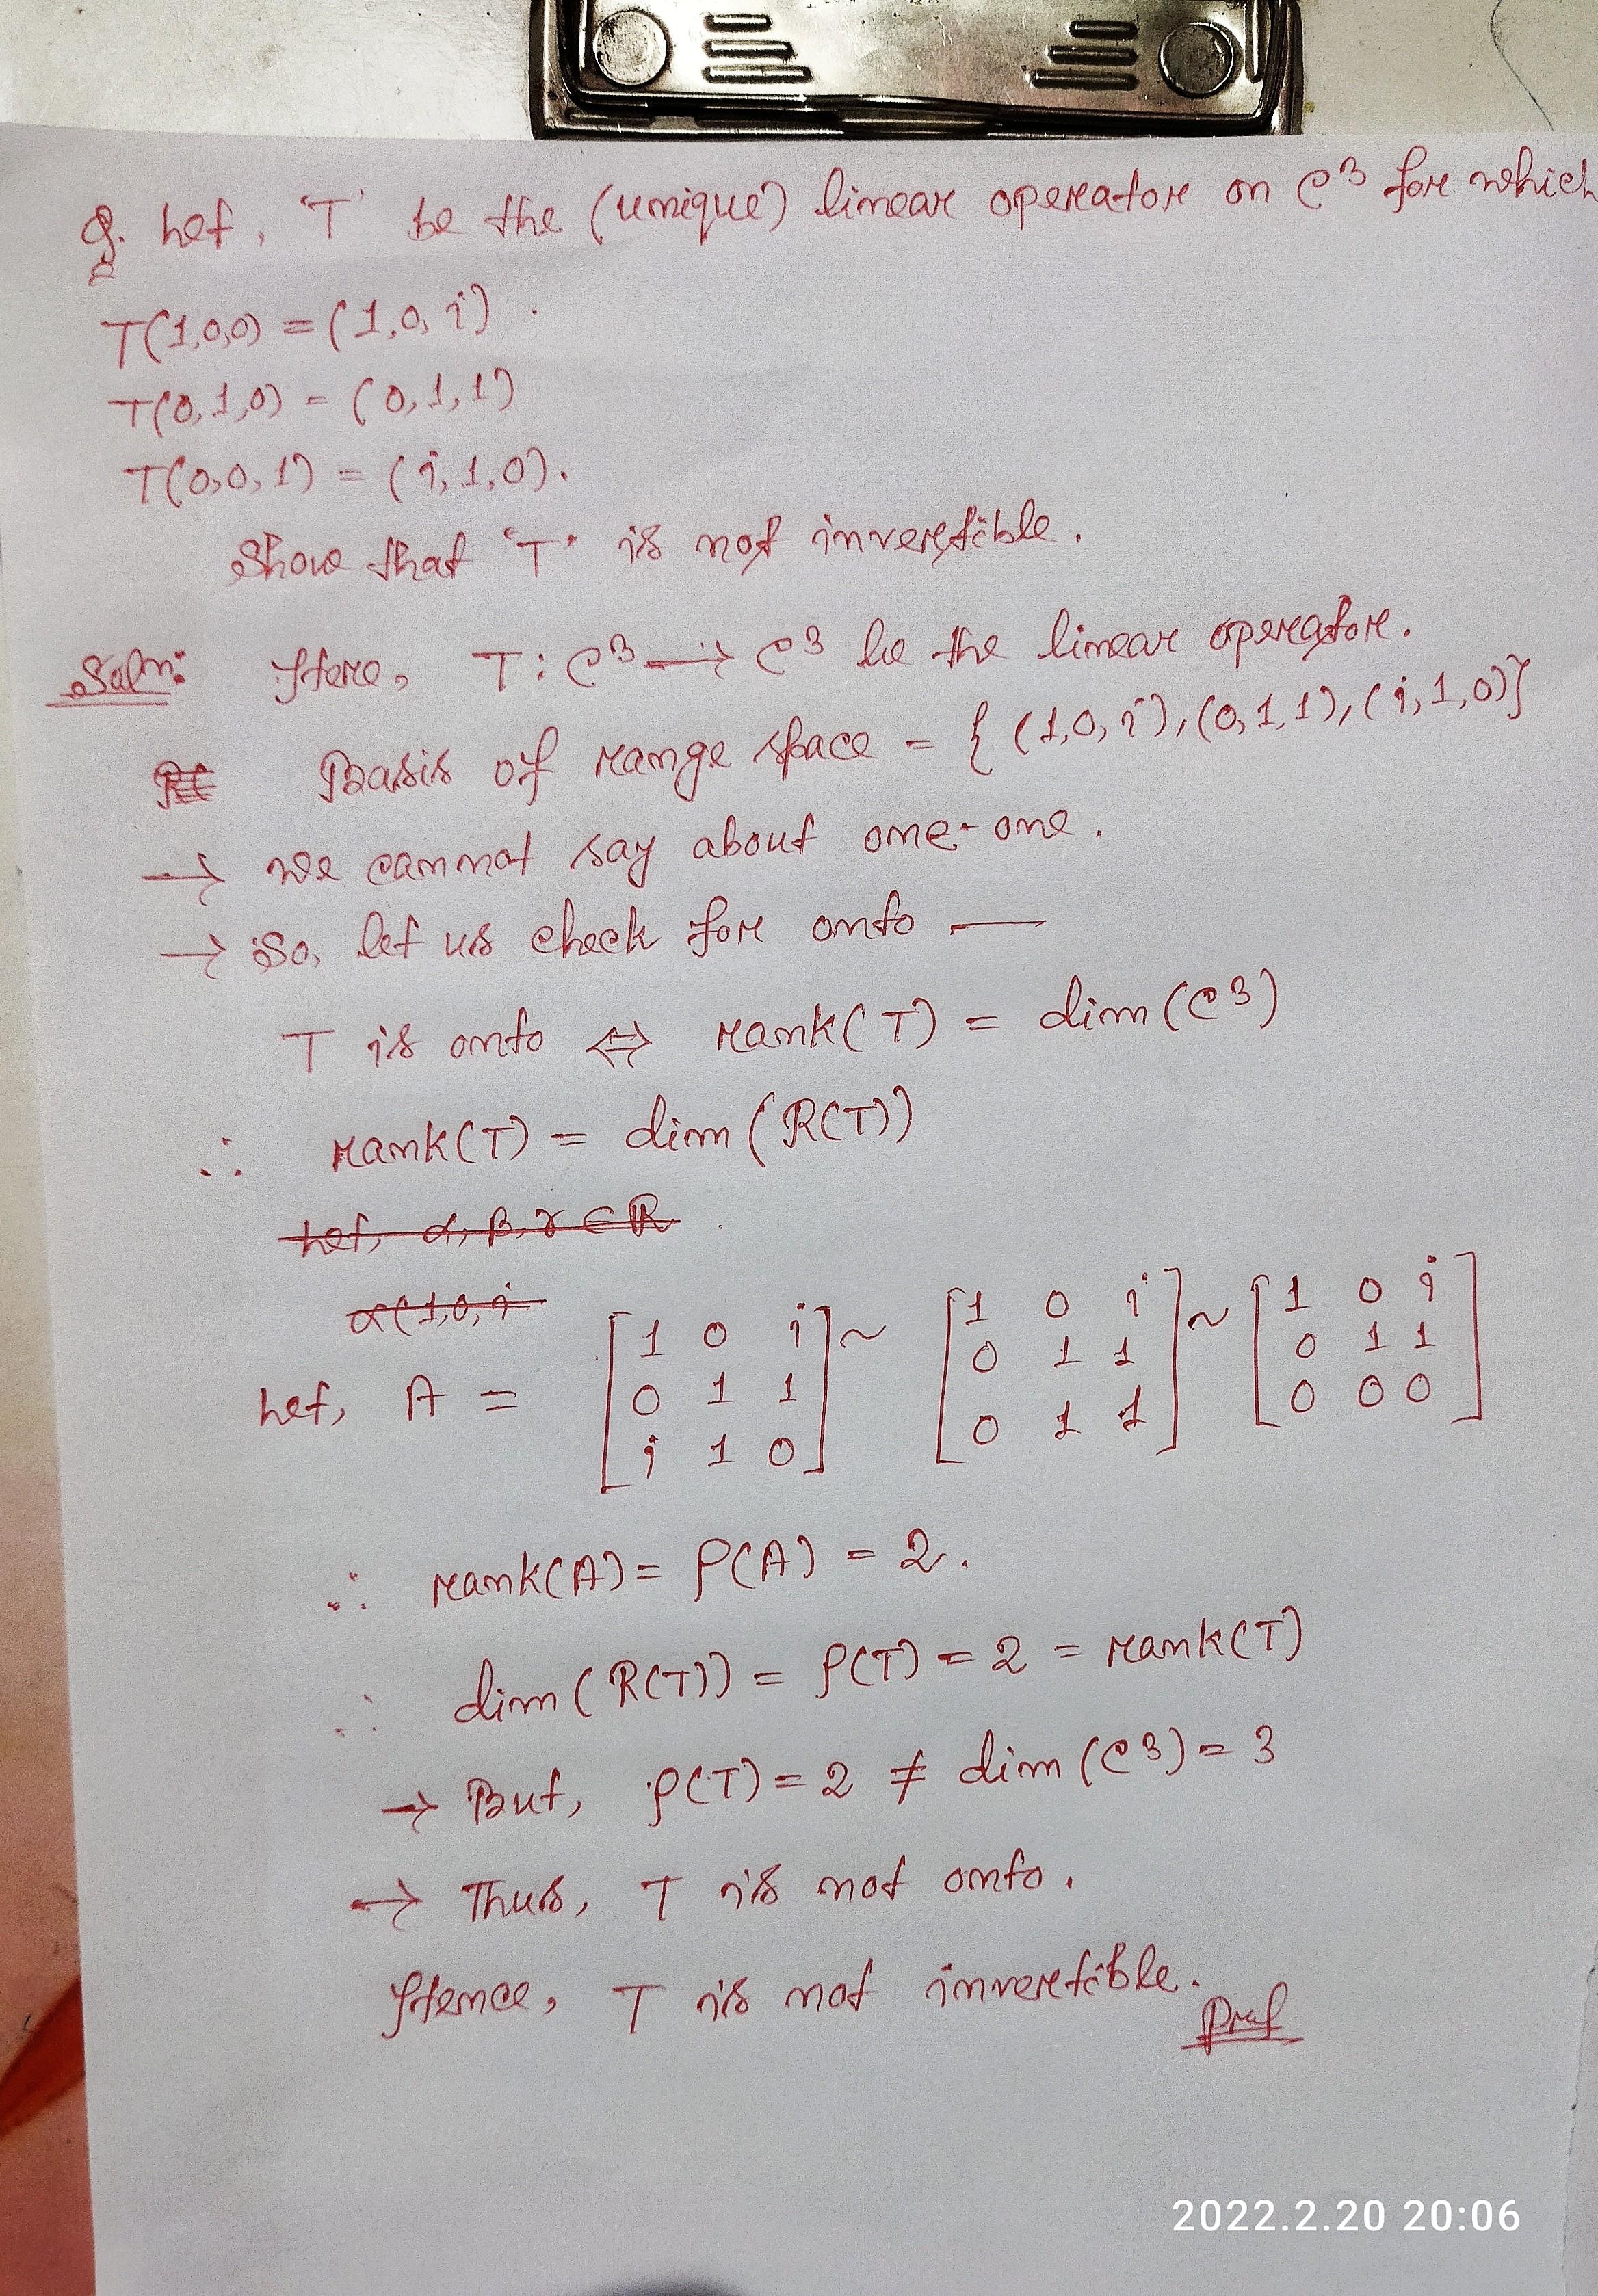 Q. Let, 'T' be the (unique) linear operator on C³ for which
T(1,0,0) = (1,0,i).
T(0,1,0) = (0,1,1)
T(0,0,1) = (i,1,0).
Show that 'T' is not invertible.
Soln: Here, T : C³ → C³ be the linear operator.
Basis of range space = { (1,0,i), (0,1,1), (i,1,0)}
→ We cannot say about one-one.
→ So, let us check for onto —
T is onto ⇔ rank(T) = dim(C³)
∴ rank(T) = dim(R(T))
Let, α, β, γ ∈ R
α(1,0,i
Let, A = [1 0 i; 0 1 1; i 1 0] ~ [1 0 i; 0 1 1; 0 1 1] ~ [1 0 i; 0 1 1; 0 0 0]
∴ rank(A) = ρ(A) = 2.
∴ dim(R(T)) = ρ(T) = 2 = rank(T)
→ But, ρ(T) = 2 ≠ dim(C³) = 3
→ Thus, T is not onto.
Hence, T is not invertible.
2022.2.20 20:06